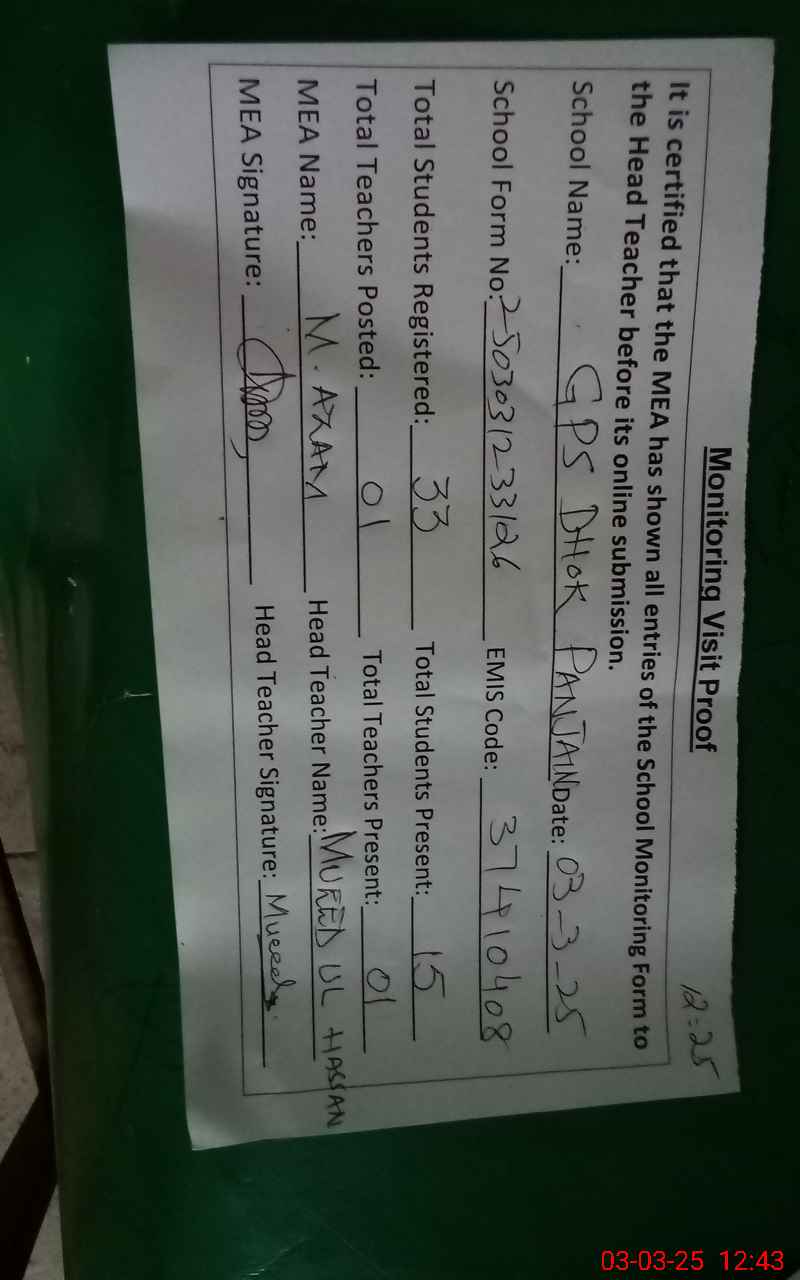 12:25
Monitoring Visit Proof
It is certified that the MEA has shown all entries of the School Monitoring Form to
the Head Teacher before its online submission.
School Name: GPS DHOK PANJAIN Date: 03-3-25
School Form No: 2503031233126 EMIS Code: 37410408
Total Students Registered: 33 Total Students Present: 15
Total Teachers Posted: 01 Total Teachers Present: 01
MEA Name: M. AZAM Head Teacher Name: MUREED UL HASSAN
MEA Signature: Head Teacher Signature: Mureed
03-03-25 12:43